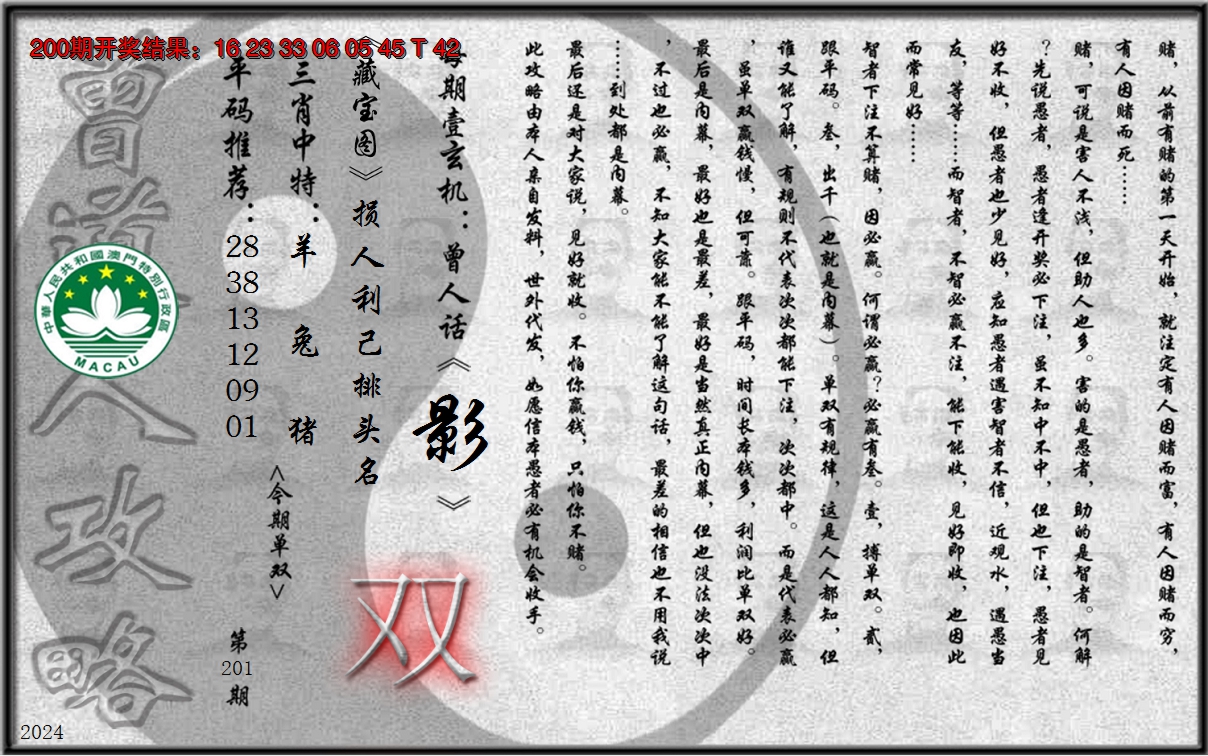 200期开奖结果：16 23 33 06 05 45 T 42
赌，从前有赌的第一天开始，就注定有人因赌而富，有人因赌而穷，
有人因赌而死……
赌，可说是害人不浅，但助人也多。害的是愚者，助的是智者。何解
？先说愚者，愚者逢开奖必下注，虽不知中不中，但也下注，愚者见
好不收，但愚者也少见好，应知愚者遇害智者不信，近观水，遇愚当
友，等等……而智者，不智必赢不注，能下能收，见好即收，也因此
而常见好……
智者下注不算赌，因必赢。何谓必赢？必赢有叁。壹，搏单双。贰，
跟平码。叁，出千（也就是内幕）。单双有规律，这是人人都知，但
谁又能了解，有规则不代表次次都能下注，次次都中。而是代表必赢
，虽单双赢钱慢，但可靠。跟平码，时间长本钱多，利润比单双好。
最后是内幕，最好也是最差，最好是当然真正内幕，但也没法次次中
，不过也必赢，不知大家能不能了解这句话，最差的相信也不用我说
……到处都是内幕。
最后还是对大家说，见好就收。不怕你赢钱，只怕你不赌。
此攻略由本人亲自发料，世外代发，如愿信本愚者必有机会收手。
每期壹玄机：曾人话《影》
《藏宝图》损人利己排头名
双
三肖中特：羊 兔 猪
<今期单双>
平码推荐：28 38 13 12 09 01
第201期
曾道人攻略
中華人民共和國澳門特別行政區
MACAU
2024